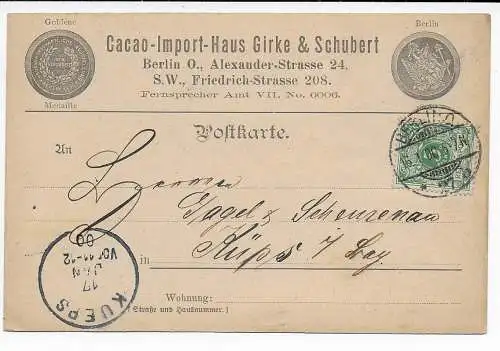 Goldene
Berlin
Cacao-Import-Haus Girke & Schubert
Berlin O., Alexander-Strasse 24.
S.W., Friedrich-Strasse 208.
Fernsprecher Amt VII, No. 6006.
Medaille
Postkarte.
BERLIN
An
Herren
in Küps i/ Bay.
KUEPS
17
JAN
VOR 11-12
00
Wohnung:
(Straße und Hausnummer.)